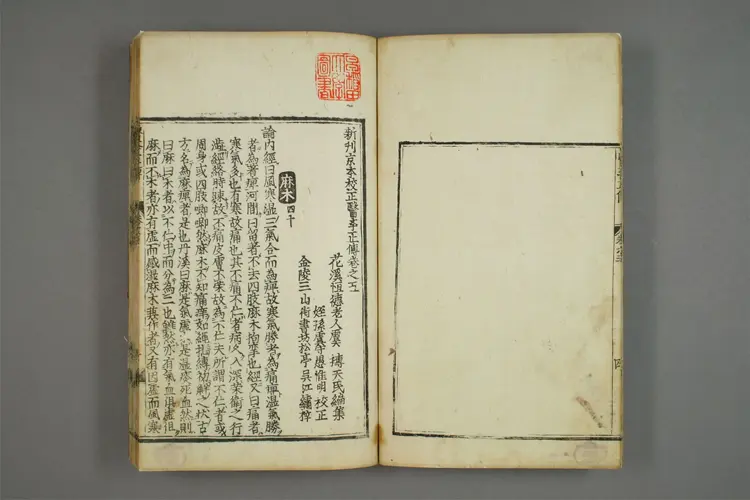 新刊京本校正醫學正傳卷之五
花溪恒德老人虞 摶天民編集
姪孫虞守愚惟明校正
金陵三山街書坊松亭吳江繡梓
麻木 四十
論內經曰風寒濕三氣合而為痺故寒氣勝者為痛痺濕氣勝
者為著痺河間曰留著不去四肢麻木拘攣也經又曰痛者
寒氣多也有寒故痛也其不痛不仁者病久入深榮衛之行
澁經絡時踈故不痛皮膚不榮故為不仁夫所謂不仁者或
周身或四肢唧唧然麻木不知痛痒如繩扎縛初觧之狀古
方名為麻痺者是也丹溪曰麻是氣虛木是濕痰死血然則
曰麻曰木者以不仁中而分為二也雖然亦有氣血俱虛但
麻而不木者亦有虛而感濕麻木兼作者又有因虛而風寒
圖書